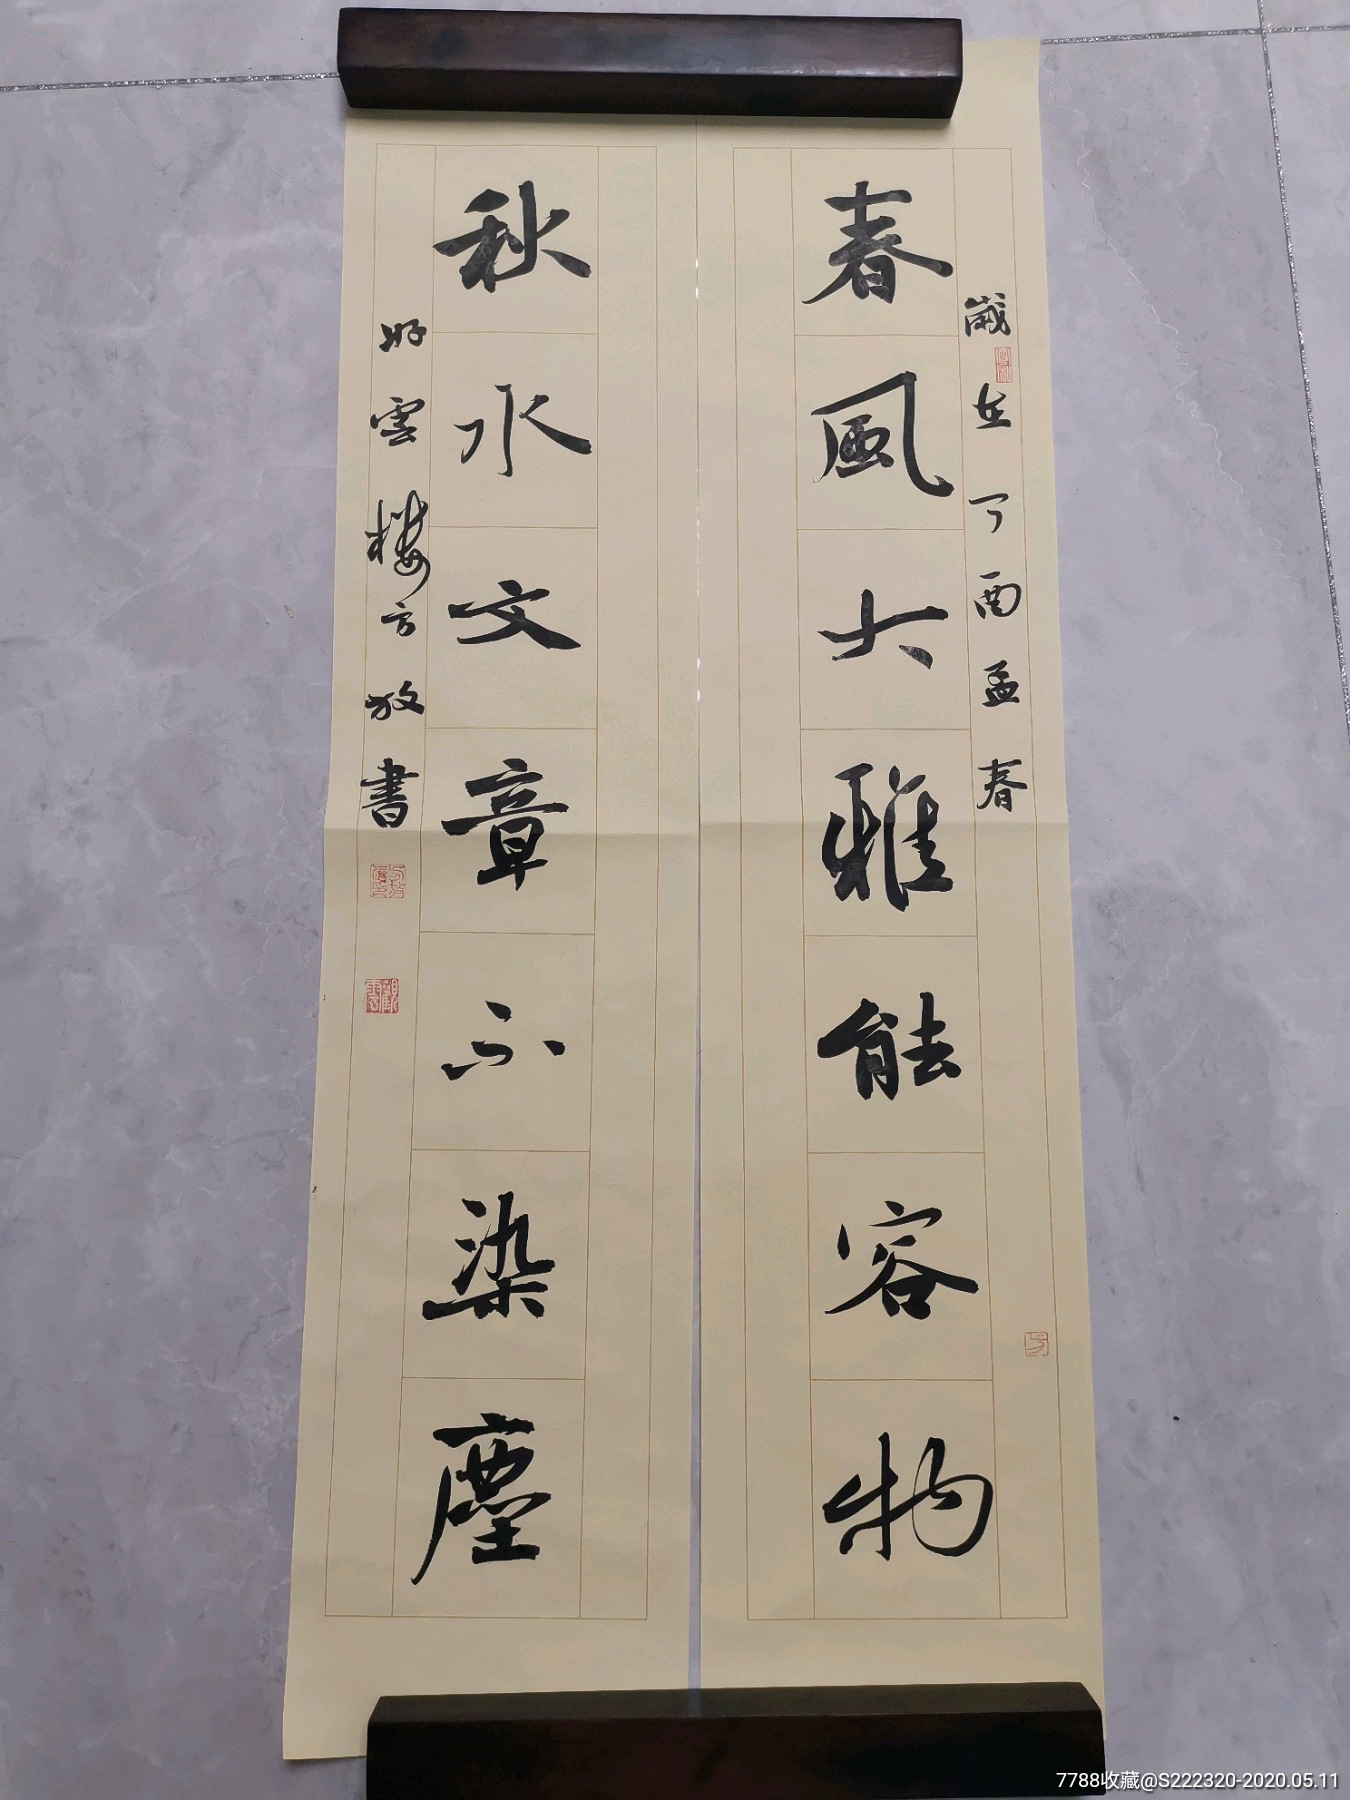 春風大雅能容物
歲在丁酉孟春
秋水文章不染塵
好雲樓方放書
7788收藏@S222320-2020.05.11